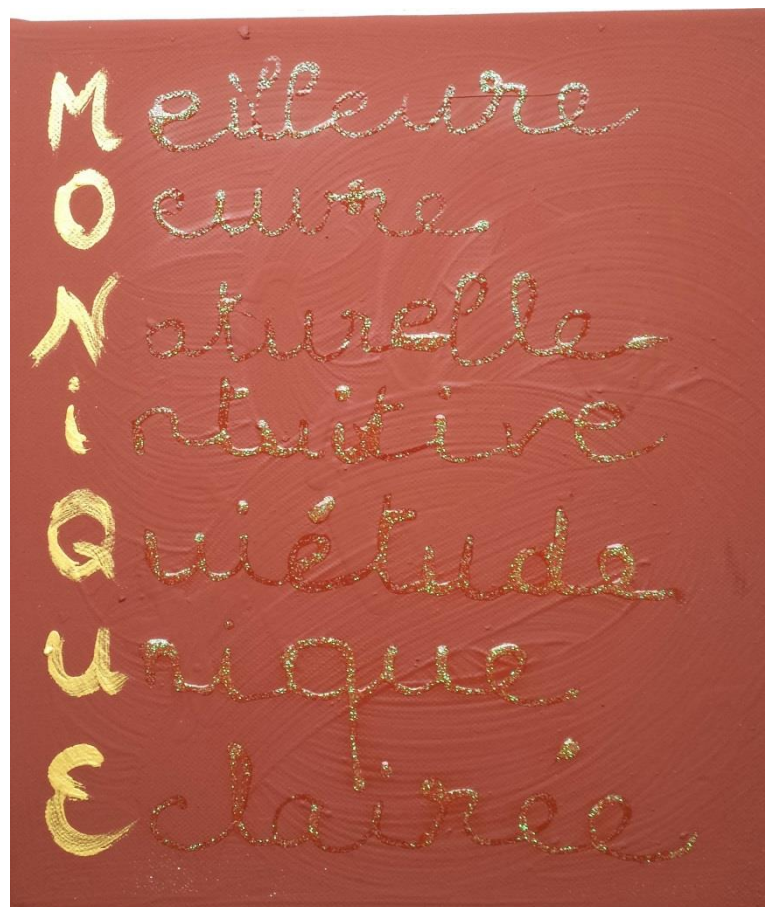 Meilleure
Oeuvre
Naturelle
intuitive
Quiétude
unique
Eclairée